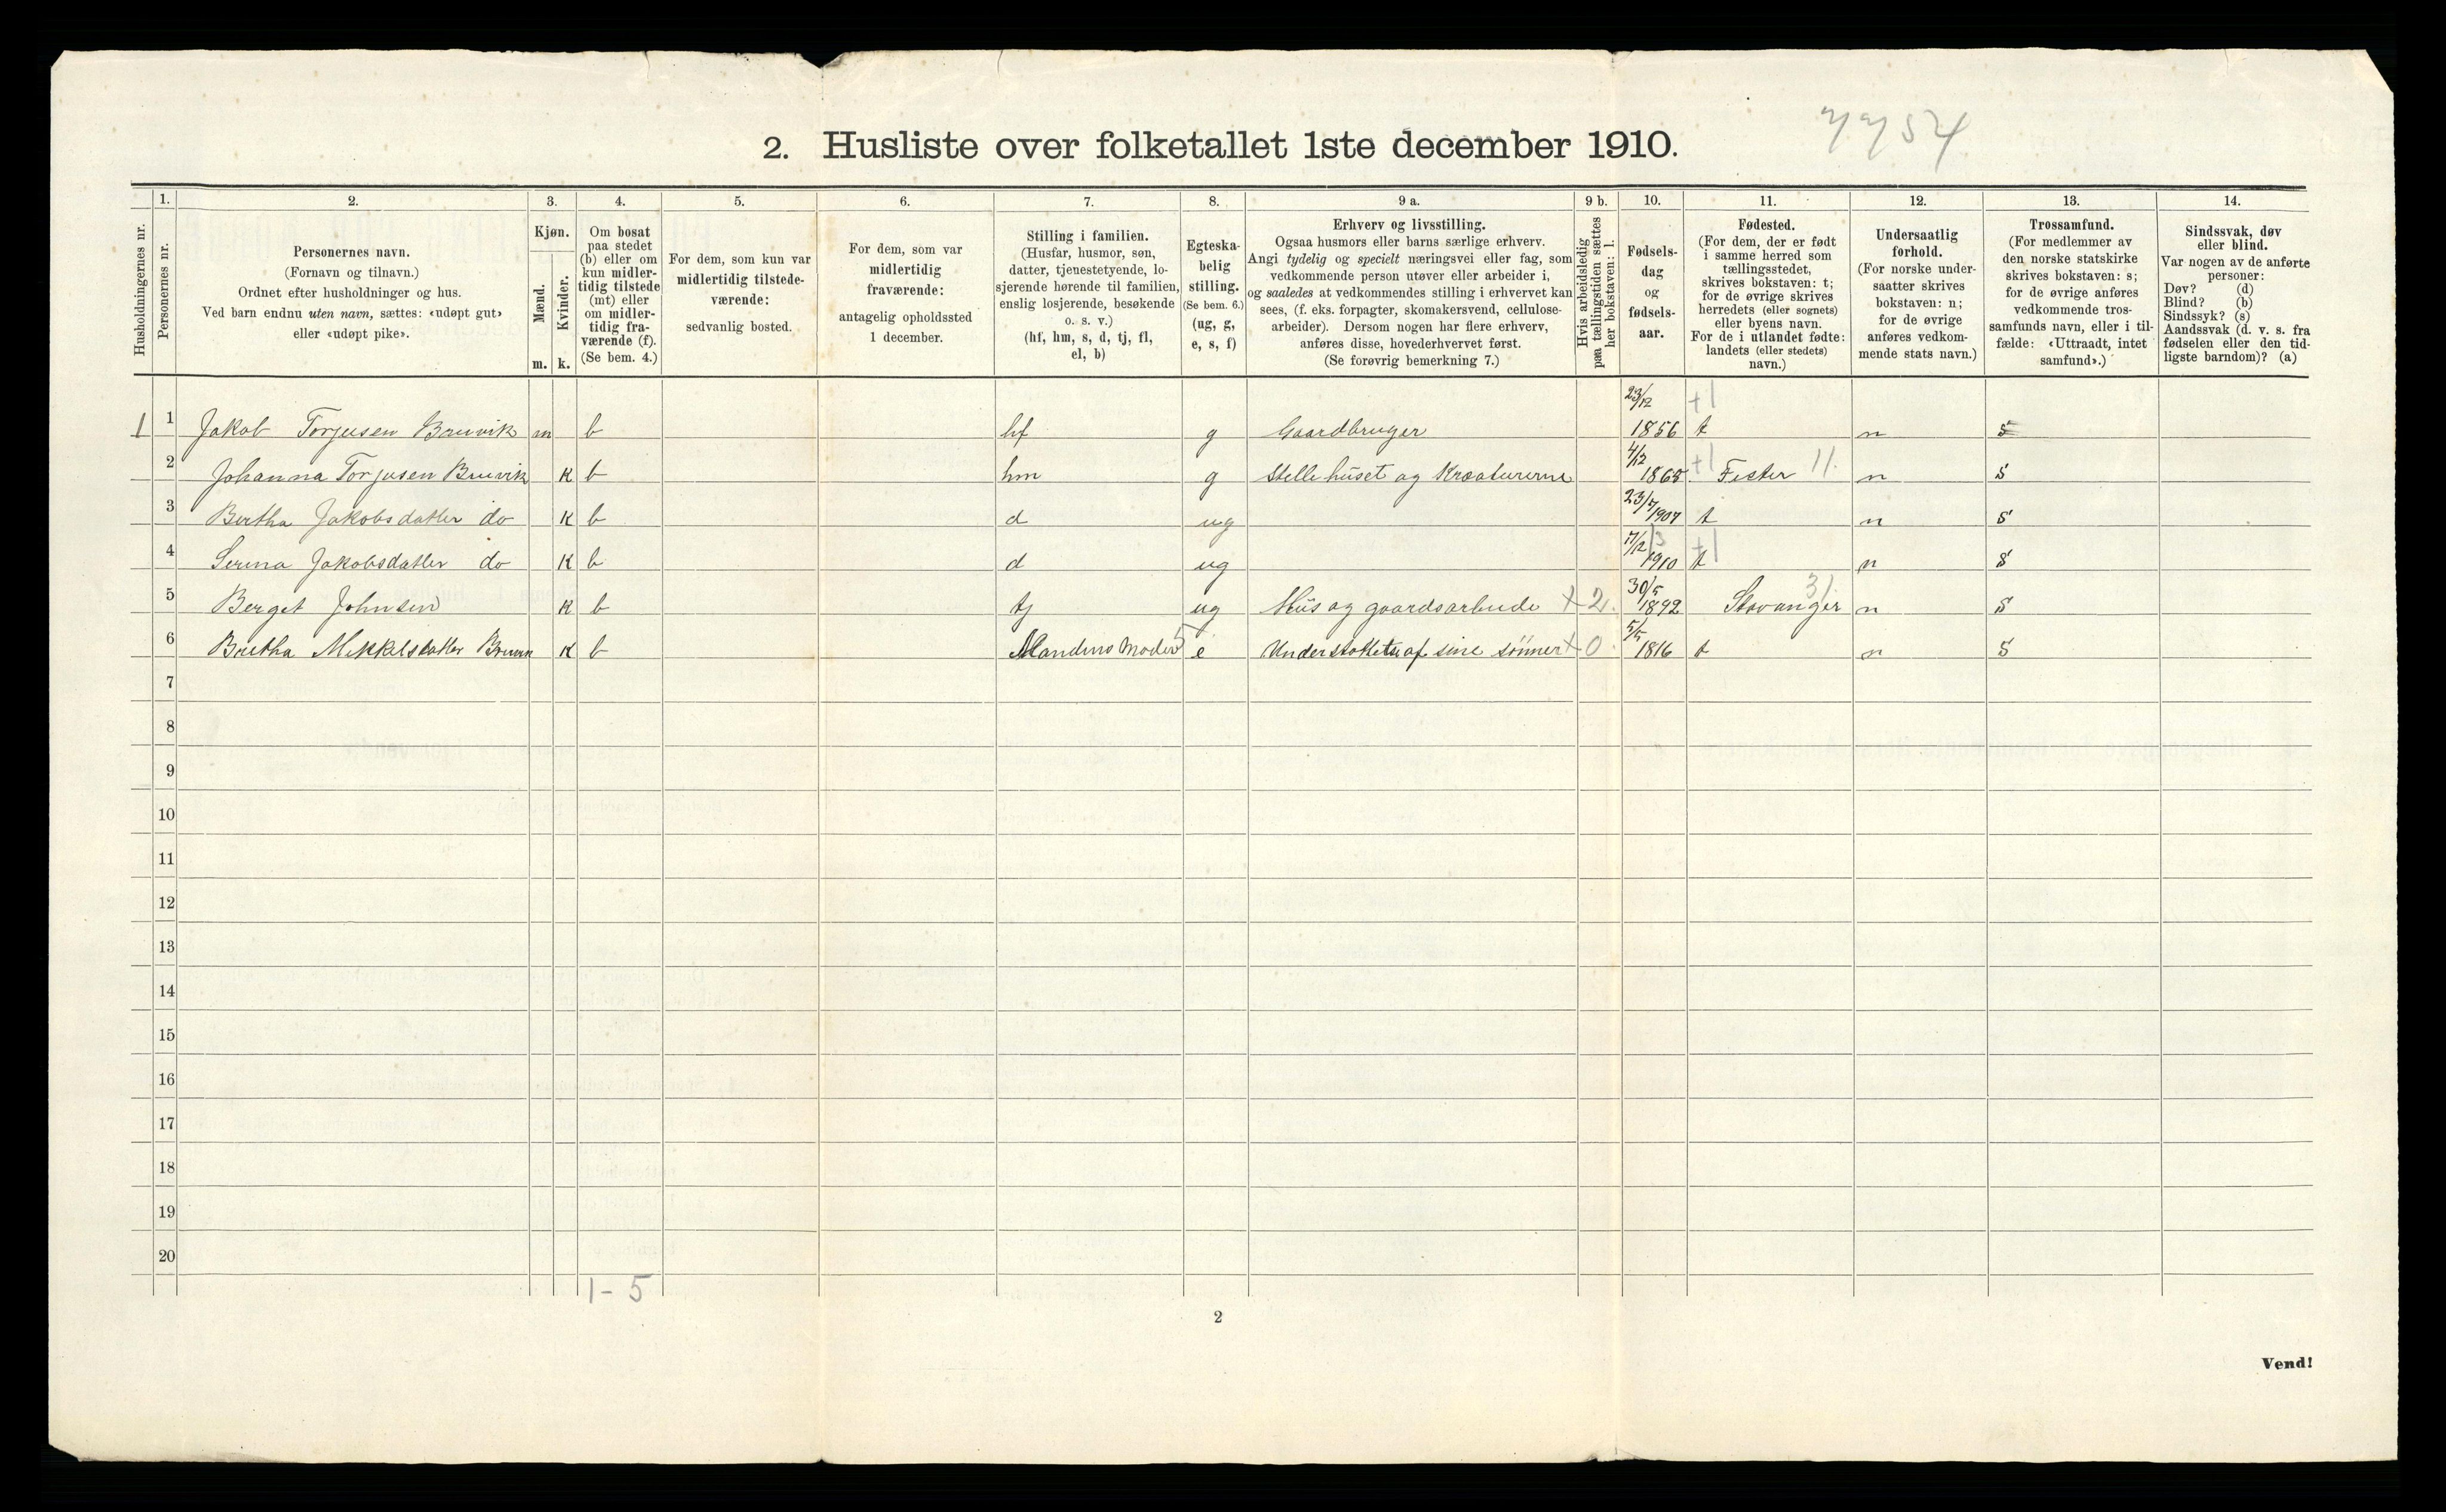 7754
2. Husliste over folketallet 1ste december 1910.
1. 2. 3. 4. 5. 6. 7. 8. 9 a. 9 b. 10. 11. 12. 13. 14.
Husholdningernes nr.
Personernes nr.
Personernes navn.
(Fornavn og tilnavn.)
Ordnet efter husholdninger og hus.
Ved barn endnu uten navn, sættes: «udøpt gut»
eller «udøpt pike».
Kjøn.
Mænd.
Kvinder.
m. k.
Om bosat
paa stedet
(b) eller om
kun midler-
tidig tilstede
(mt) eller
om midler-
tidig fra-
værende (f).
(Se bem. 4.)
For dem, som kun var
midlertidig tilstede-
værende:
sedvanlig bosted.
For dem, som var
midlertidig
fraværende:
antagelig opholdssted
1 december.
Stilling i familien.
(Husfar, husmor, søn,
datter, tjenestetyende, lo-
sjerende hørende til familien,
enslig losjerende, besøkende
o. s. v.)
(hf, hm, s, d, tj, fl,
el, b)
Egteska-
belig
stilling.
(Se bem. 6.)
(ug, g,
e, s, f)
Erhverv og livsstilling.
Ogsaa husmors eller barns særlige erhverv.
Angi tydelig og specielt næringsvei eller fag, som
vedkommende person utøver eller arbeider i,
og saaledes at vedkommendes stilling i erhvervet kan
sees, (f. eks. forpagter, skomakersvend, cellulose-
arbeider). Dersom nogen har flere erhverv,
anføres disse, hovederhvervet først.
(Se forøvrig bemerkning 7.)
Hvis arbeidsledig
paa tællingstiden sættes
her bokstaven: l.
Fødsels-
dag
og
fødsels-
aar.
Fødested.
(For dem, der er født
i samme herred som
tællingsstedet,
skrives bokstaven: t;
for de øvrige skrives
herredets (eller sognets)
eller byens navn.
For de i utlandet fødte:
landets (eller stedets)
navn.)
Undersaatlig
forhold.
(For norske under-
saatter skrives
bokstaven: n;
for de øvrige
anføres vedkom-
mende stats navn.)
Trossamfund.
(For medlemmer av
den norske statskirke
skrives bokstaven: s;
for de øvrige anføres
vedkommende tros-
samfunds navn, eller i til-
fælde: «Uttraadt, intet
samfund».)
Sindssvak, døv
eller blind.
Var nogen av de anførte
personer:
Døv? (d)
Blind? (b)
Sindssyk? (s)
Aandssvak (d. v. s. fra
fødselen eller den tid-
ligste barndom)? (a)
1 1 Jakob Torjusen Bruvik m b hf g Gaardbruger 23/12 1856 t +1 n s
2 Johanna Torjusen Bruvik k b hm g Stelle huset og Kreaturerne 4/12 1865 +1 Fister 11. n s
3 Bertha Jakobsdatter do k b d ug 23/7 1907 t n s
4 Serina Jakobsdatter do k b d ug 7/12 1910 t +1 n s
5 Berget Johnsen k b tj ug Hus og gaardsarbeide +2. 30/5 1892 Stavanger 31. n s
6 Bertha Mikkelsdatter k b Mandens Moder e Understøttes af sine sönner +0. 5/5 1816 t n s
7
8
9
10
11
12
13
14
15
16
17
18
19
20
1-5
2
Vend!